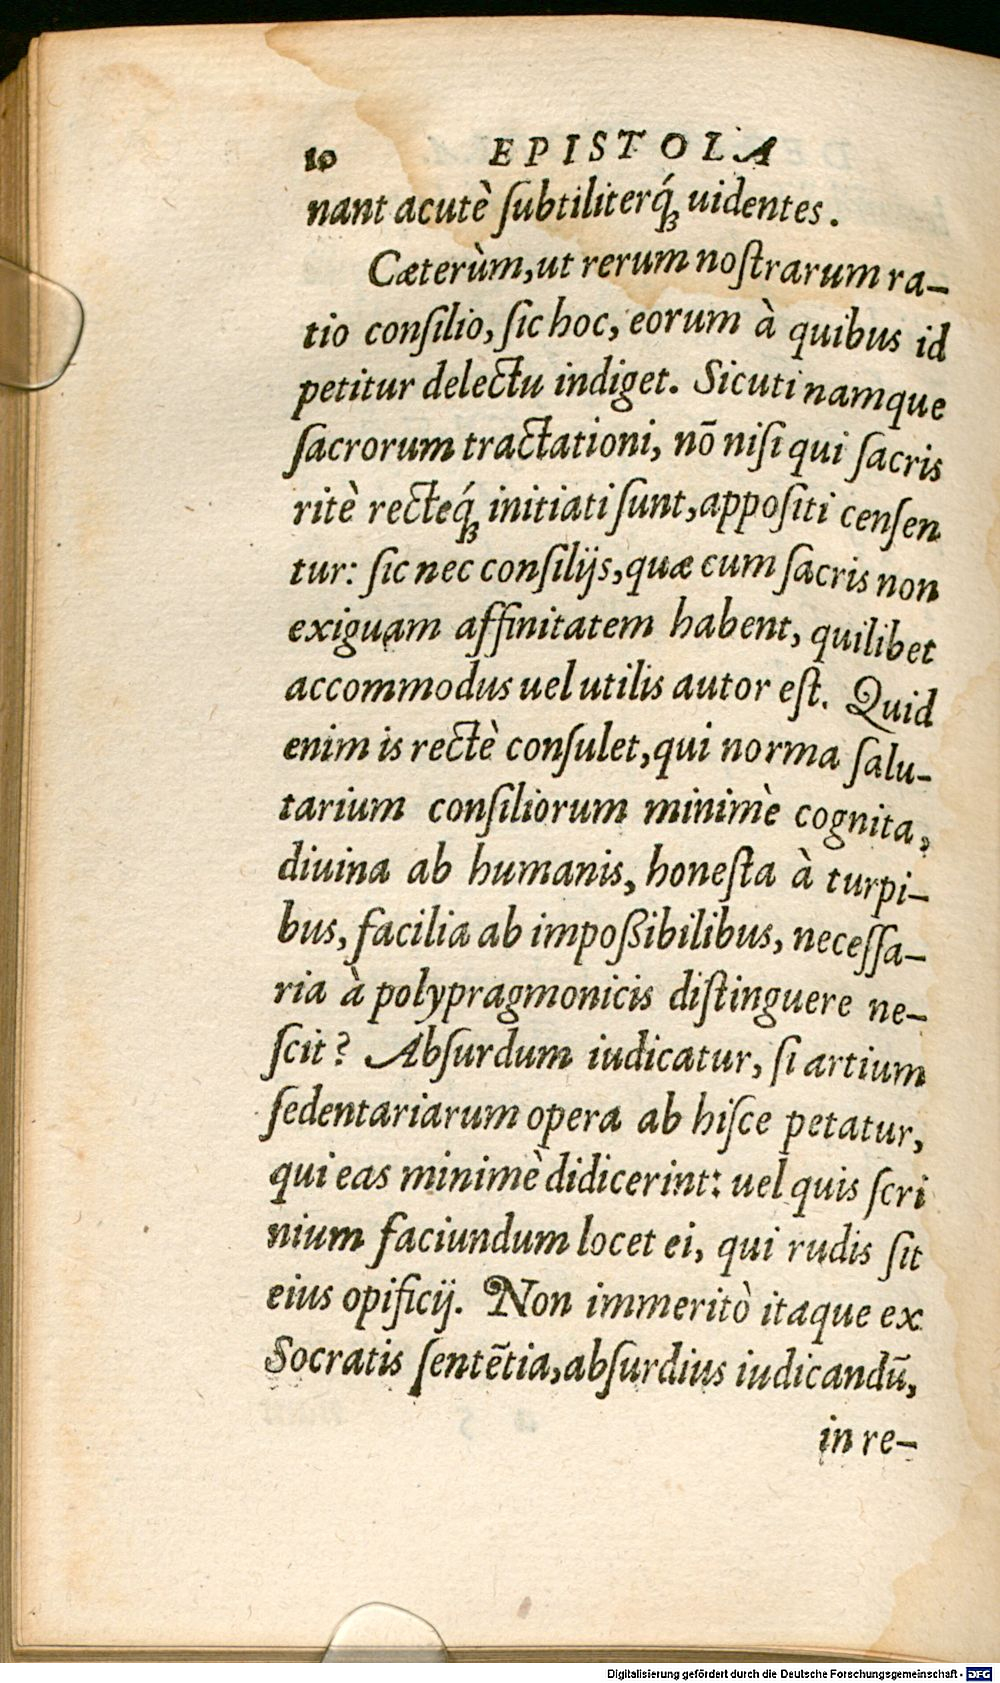 10 EPISTOLA
nant acutè ſubtiliterq́ꝫ uidentes.
Cæterùm, ut rerum noſtrarum ra-
tio conſilio, ſic hoc, eorum à quibus id
petitur delectu indiget. Sicuti namque
ſacrorum tractationi, nō niſi qui ſacris
ritè recteq́ꝫ initiati ſunt, appoſiti cenſen
tur: ſic nec conſilijs, quæ cum ſacris non
exiguam affinitatem habent, quilibet
accommodus uel utilis autor eſt. Quid
enim is rectè conſulet, qui norma ſalu-
tarium conſiliorum minimè cognita,
diuina ab humanis, honeſta à turpi-
bus, facilia ab impoßibilibus, neceſſa-
ria à polypragmonicis diſtinguere ne-
ſcit? Abſurdum iudicatur, ſi artium
ſedentariarum opera ab hiſce petatur,
qui eas minimè didicerint: uel quis ſcri
nium faciundum locet ei, qui rudis ſit
eius opificij. Non immeritò itaque ex
Socratis ſentētia, abſurdius iudicandū,
in re-
Digitalisierung gefördert durch die Deutsche Forschungsgemeinschaft - DFG